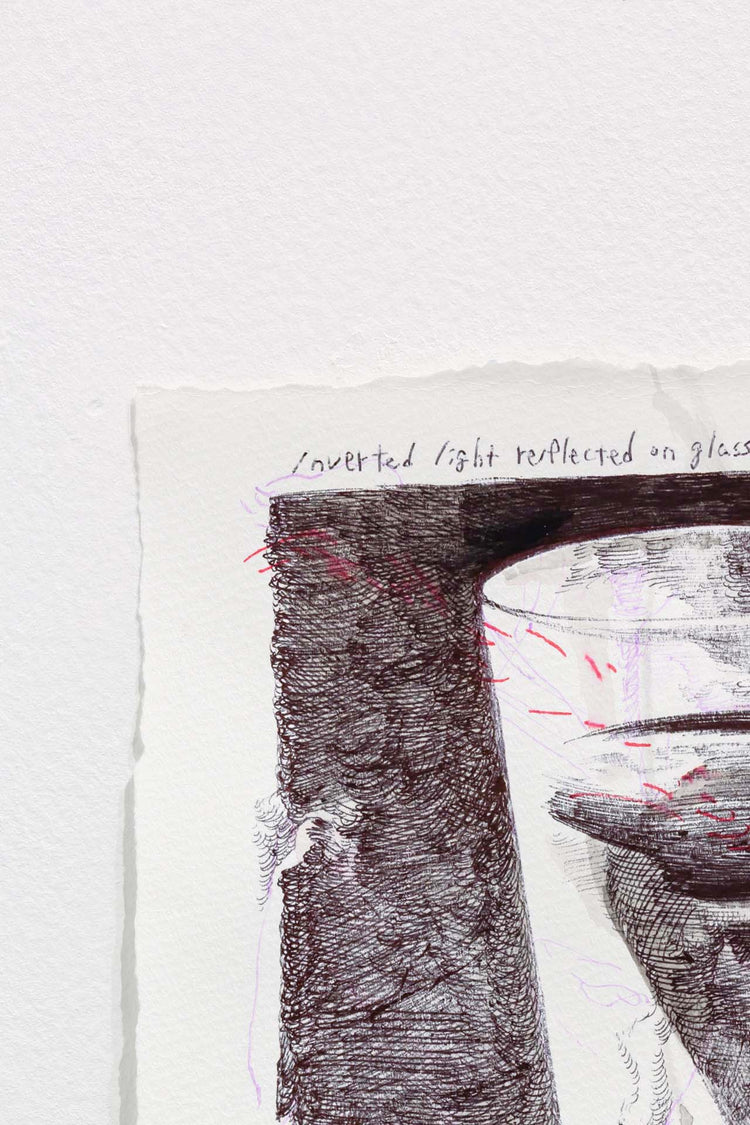 Inverted light reflected on glass